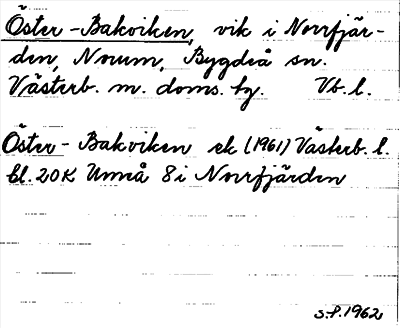 Öster-Bakviken, vik i Norrfjär-
den, Norum, Bygdeå sn.
Västerb. m. doms. bg. Vb. l.
Öster- Bakviken ek (1961) Västerb. l.
bl. 20K Umeå 8 i Norrfjärden
s.f. 1962